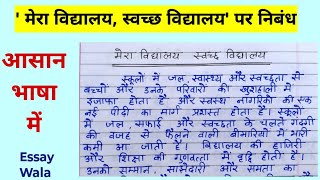 ' मेरा विद्यालय, स्वच्छ विद्यालय' पर निबंध
आसान
भाषा
में
Essay
Wala
मेरा विद्यालय स्वच्छ विद्यालय
स्कूलों में जल, स्वास्थ्य और स्वच्छता से
बच्चों और उनके परिवारों की खुशहाली में
इजाफा होता है और स्वस्थ नागरिकों की एक
नई पीढ़ी का मार्ग प्रशस्त होता है। स्कूलों
में जल, सफाई और स्वच्छता के चलते गंदगी
की वजह से फैलने वाली बीमारियों में भारी
कमी आ जाती है। विद्यालय की हाजिरी
और शिक्षा की गुणवत्ता में वृद्धि होती है।
उनकी सम्मान, साझेदारी और समता का